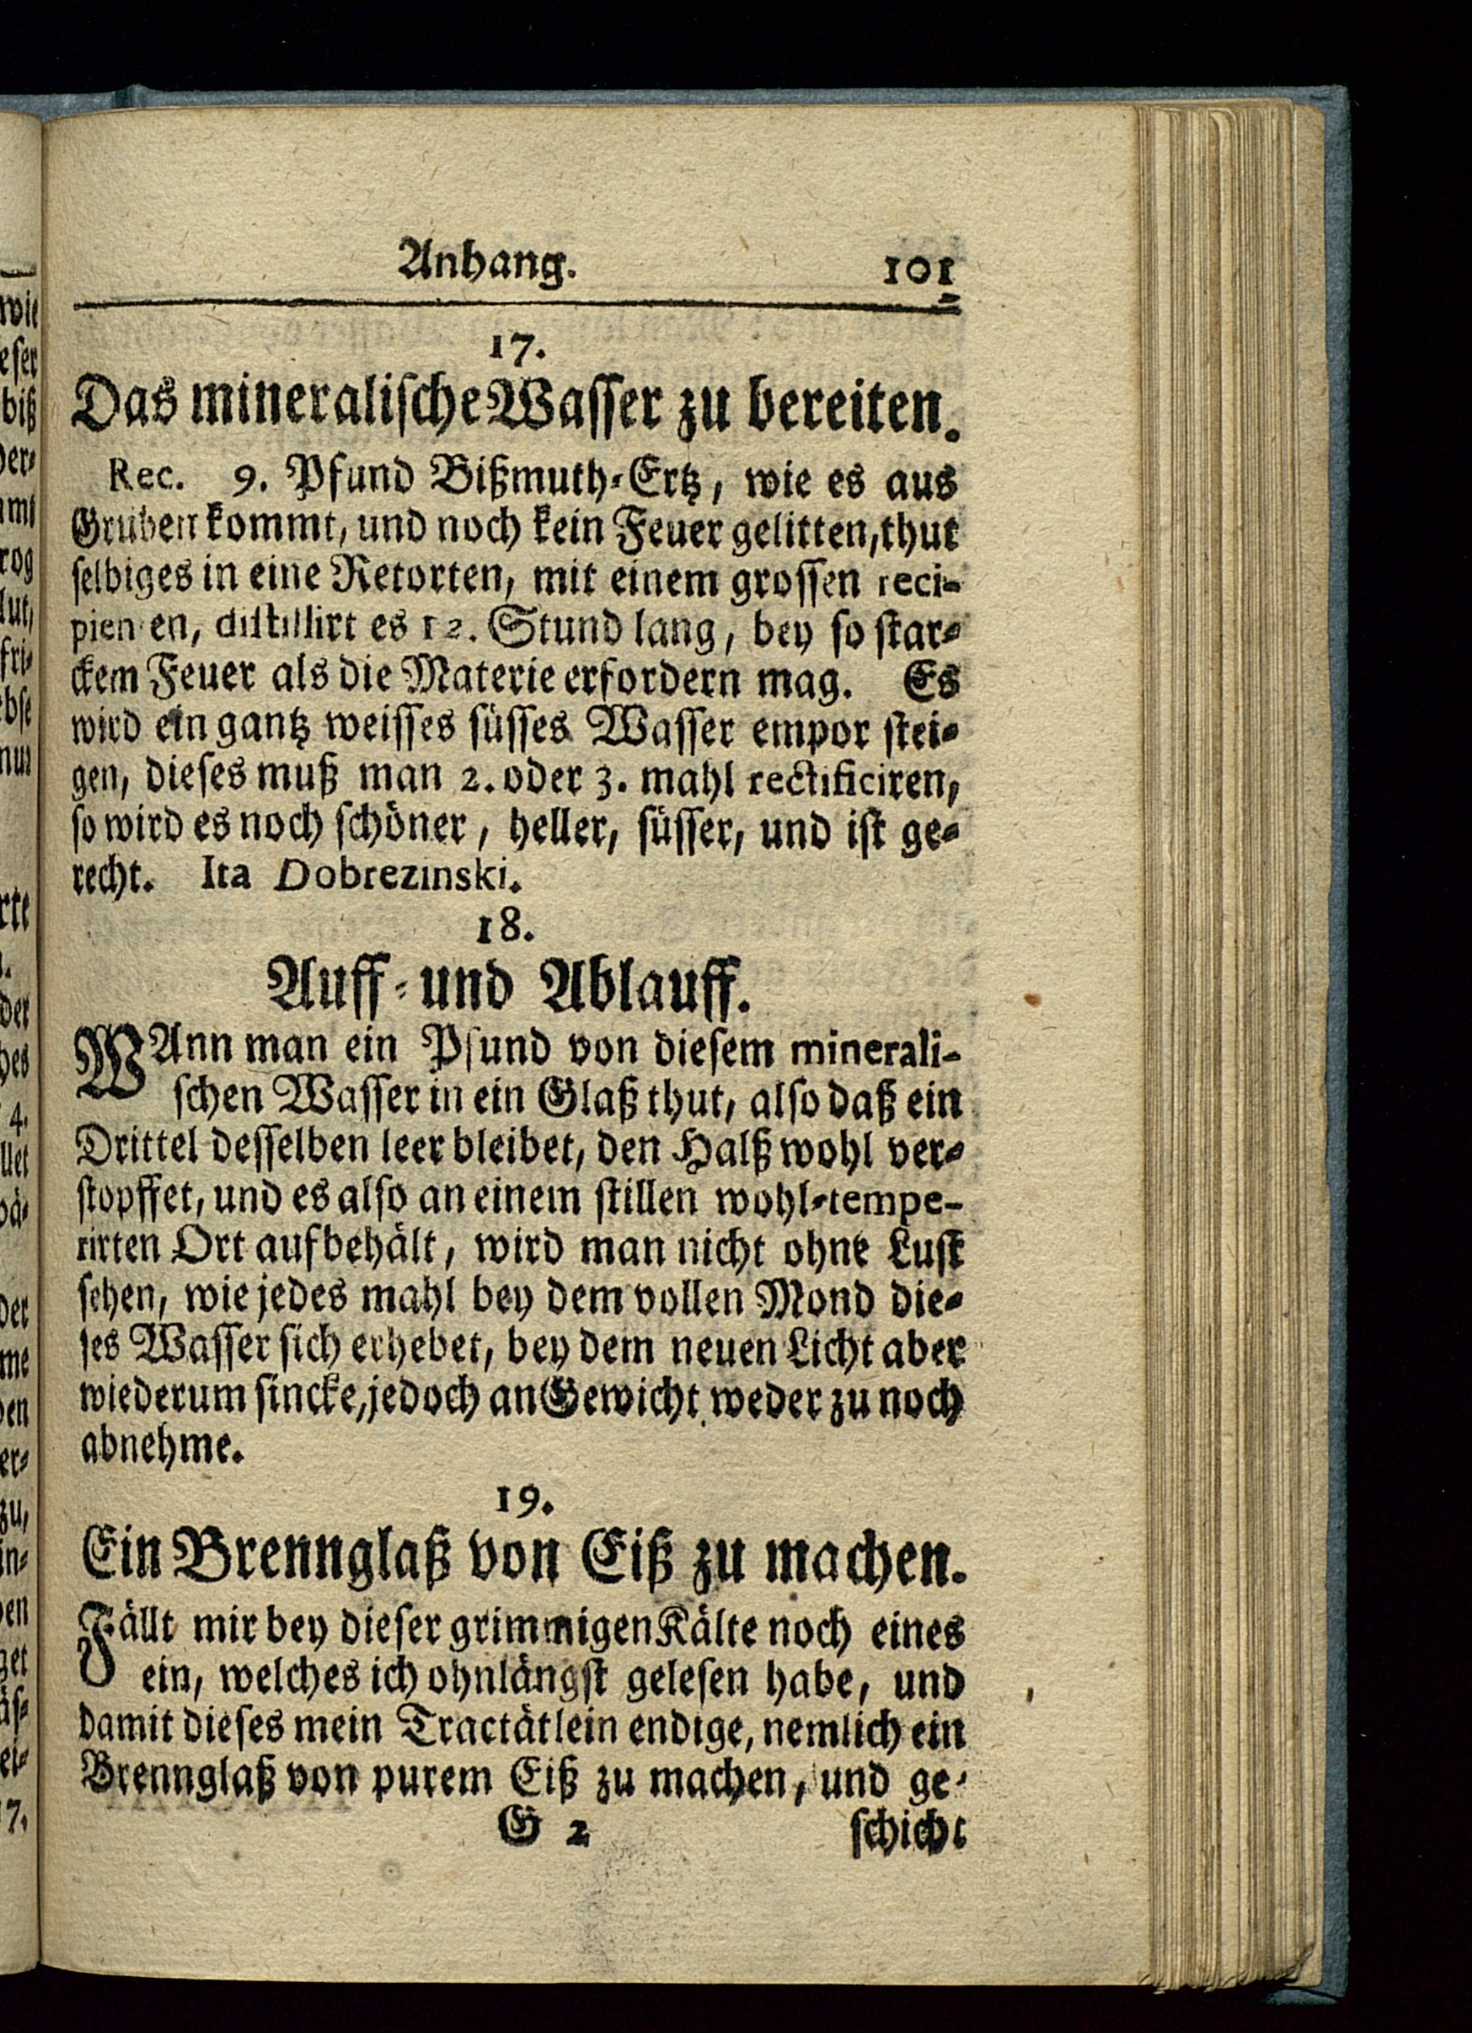 Anhang. 101
17.
Das mineralische Wasser zu bereiten.
Rec. 9. Pfund Bißmuth-Ertz, wie es aus
Gruben kommt, und noch kein Feuer gelitten, thut
selbiges in eine Retorten, mit einem grossen reci-
pienten, distillirt es 12. Stund lang, bey so star-
ckem Feuer als die Materie erfordern mag. Es
wird ein gantz weisses süsses Wasser empor stei-
gen, dieses muß man 2. oder 3. mahl rectificiren,
so wird es noch schöner, heller, süsser, und ist ge-
recht. Ita Dobrezinski.
18.
Auff- und Ablauff.
WAnn man ein Pfund von diesem minerali-
schen Wasser in ein Glaß thut, also daß ein
Drittel desselben leer bleibet, den Halß wohl ver-
stopffet, und es also an einem stillen wohl-tempe-
rirten Ort aufbehält, wird man nicht ohne Lust
sehen, wie jedes mahl bey dem vollen Mond die-
ses Wasser sich erhebet, bey dem neuen Licht aber
wiederum sincke, jedoch an Gewicht weder zu noch
abnehme.
19.
Ein Brennglaß von Eiß zu machen.
Fällt mir bey dieser grimmigen Kälte noch eines
ein, welches ich ohnlängst gelesen habe, und
damit dieses mein Tractätlein endige, nemlich ein
Brennglaß von purem Eiß zu machen, und ge-
G 2 schicht